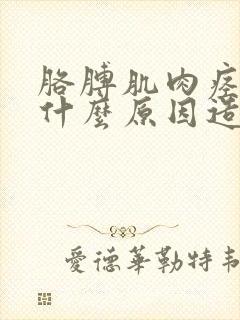 胳膊肌肉痉
什麼原因造
愛德華勒特韦